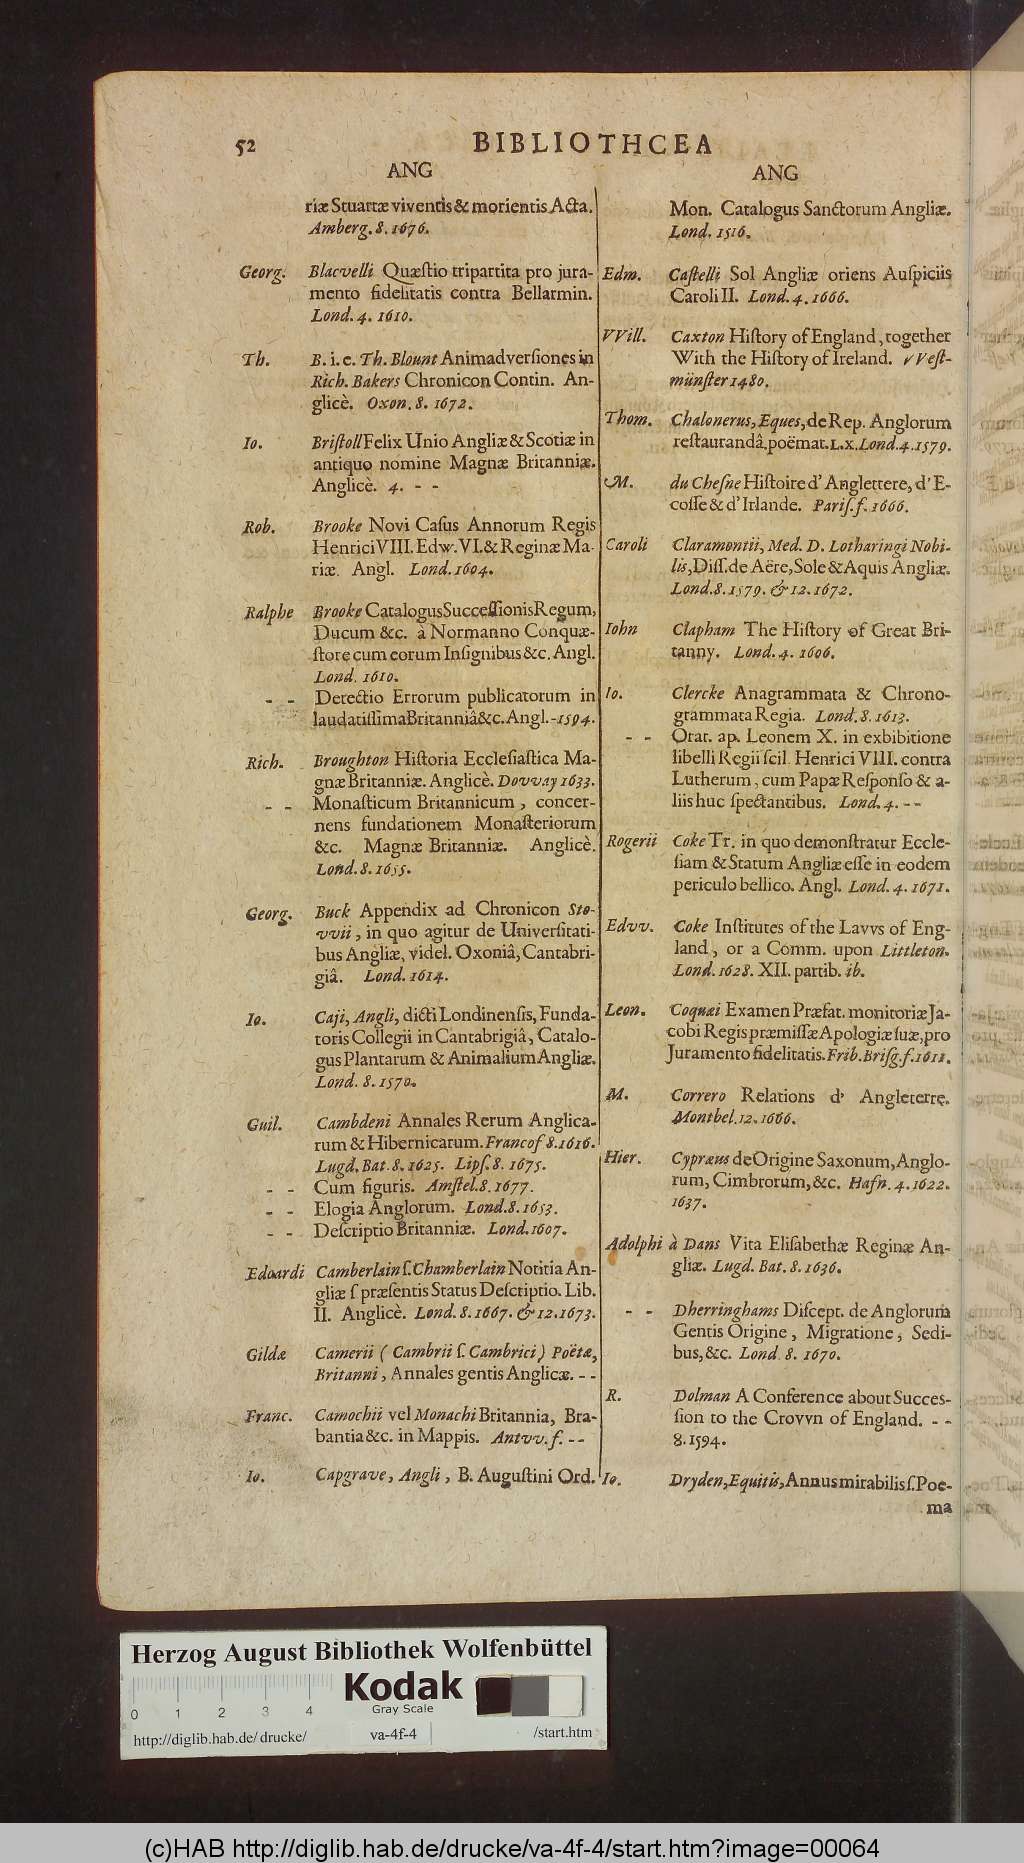 52 BIBLIOTHCEA
ANG
riæ Stuartæ viventis & morientis Acta.
Amberg. 8. 1676.
Georg. Blacvelli Quæstio tripartita pro jura-
mento fidelitatis contra Bellarmin.
Lond. 4. 1610.
Th. B. i. e. Th. Blount Animadversiones in
Rich. Bakers Chronicon Contin. An-
glicè. Oxon. 8. 1672.
Io. Bristoll Felix Unio Angliæ & Scotiæ in
antiquo nomine Magnæ Britanniæ.
Anglicè. 4. - -
Rob. Brooke Novi Casus Annorum Regis
Henrici VIII. Edw. VI. & Reginæ Ma-
riæ. Angl. Lond. 1604.
Ralphe Brooke Catalogus Successionis Regum,
Ducum &c. à Normanno Conquæ-
store cum eorum Insignibus &c. Angl.
Lond. 1610.
- - Detectio Errorum publicatorum in
laudatissima Britanniâ &c. Angl. - 1594.
Rich. Broughton Historia Ecclesiastica Ma-
gnæ Britanniæ. Anglicè. Dovvay 1633.
- - Monasticum Britannicum, concer-
nens fundationem Monasteriorum
&c. Magnæ Britanniæ. Anglicè.
Lond. 8. 1655.
Georg. Buck Appendix ad Chronicon Sto-
vvii, in quo agitur de Universitati-
bus Angliæ, videl. Oxoniâ, Cantabri-
giâ. Lond. 1614.
Io. Caji, Angli, dicti Londinensis, Funda-
toris Collegii in Cantabrigiâ, Catalo-
gus Plantarum & Animalium Angliæ.
Lond. 8. 1570.
Guil. Cambdeni Annales Rerum Anglica-
rum & Hibernicarum. Francof 8. 1616.
Lugd. Bat. 8. 1625. Lips. 8. 1675.
- - Cum figuris. Amstel. 8. 1677.
- - Elogia Anglorum. Lond. 8. 1653.
- - Descriptio Britanniæ. Lond. 1607.
Edoardi Camberlain s. Chamberlain Notitia An-
gliæ s præsentis Status Descriptio. Lib.
II. Anglicè. Lond. 8. 1667. & 12. 1673.
Gildæ Camerii ( Cambrii s. Cambrici ) Poëtæ,
Britanni, Annales gentis Anglicæ. - -
Franc. Camochii vel Monachi Britannia, Bra-
bantia &c. in Mappis. Antvv. f. - -
Io. Capgrave, Angli, B. Augustini Ord.
ANG
Mon. Catalogus Sanctorum Angliæ.
Lond. 1516.
Edm. Castelli Sol Angliæ oriens Auspiciis
Caroli II. Lond. 4. 1666.
VVill. Caxton History of England, together
With the History of Ireland. VVest-
münster 1480.
Thom. Chalonerus, Eques, de Rep. Anglorum
restaurandâ, poëmat. L. X. Lond. 4. 1579.
M. du Chesne Histoire d' Anglettere, d' E-
cosse & d' Irlande. Paris. f. 1666.
Caroli Claramontii, Med. D. Lotharingi Nobi-
lis, Diss. de Aëre, Sole & Aquis Angliæ.
Lond. 8. 1579. & 12. 1672.
Iohn Clapham The History of Great Bri-
tanny. Lond. 4. 1606.
Io. Clercke Anagrammata & Chrono-
grammata Regia. Lond. 8. 1613.
- - Orat. ap. Leonem X. in exbibitione
libelli Regii scil. Henrici VIII. contra
Lutherum, cum Papæ Responso & a-
liis huc spectantibus. Lond. 4. - -
Rogerii Coke Tr. in quo demonstratur Eccle-
siam & Statum Angliæ esse in eodem
periculo bellico. Angl. Lond. 4. 1671.
Edvv. Coke Institutes of the Lavvs of Eng-
land, or a Comm. upon Littleton.
Lond. 1628. XII. partib. ib.
Leon. Coquæi Examen Præfat. monitoriæ Ja-
cobi Regis præmissæ Apologiæ suæ, pro
Juramento fidelitatis. Frib. Brisg. f. 1611.
M. Correro Relations d' Angleterre.
Montbel. 12. 1666.
Hier. Cypræus de Origine Saxonum, Anglo-
rum, Cimbrorum, &c. Hafn. 4. 1622.
1637.
Adolphi à Dans Vita Elisabethæ Reginæ An-
gliæ. Lugd. Bat. 8. 1636.
- - Dherringhams Discept. de Anglorum
Gentis Origine, Migratione, Sedi-
bus, &c. Lond. 8. 1670.
R. Dolman A Conference about Succes-
sion to the Crovvn of England. - -
8. 1594.
Io. Dryden, Equitis, Annus mirabilis s. Poe-
ma
Herzog August Bibliothek Wolfenbüttel
Kodak
Gray Scale
0 1 2 3 4
http://diglib.hab.de/drucke/ va-4f-4 /start.htm
(c)HAB http://diglib.hab.de/drucke/va-4f-4/start.htm?image=00064